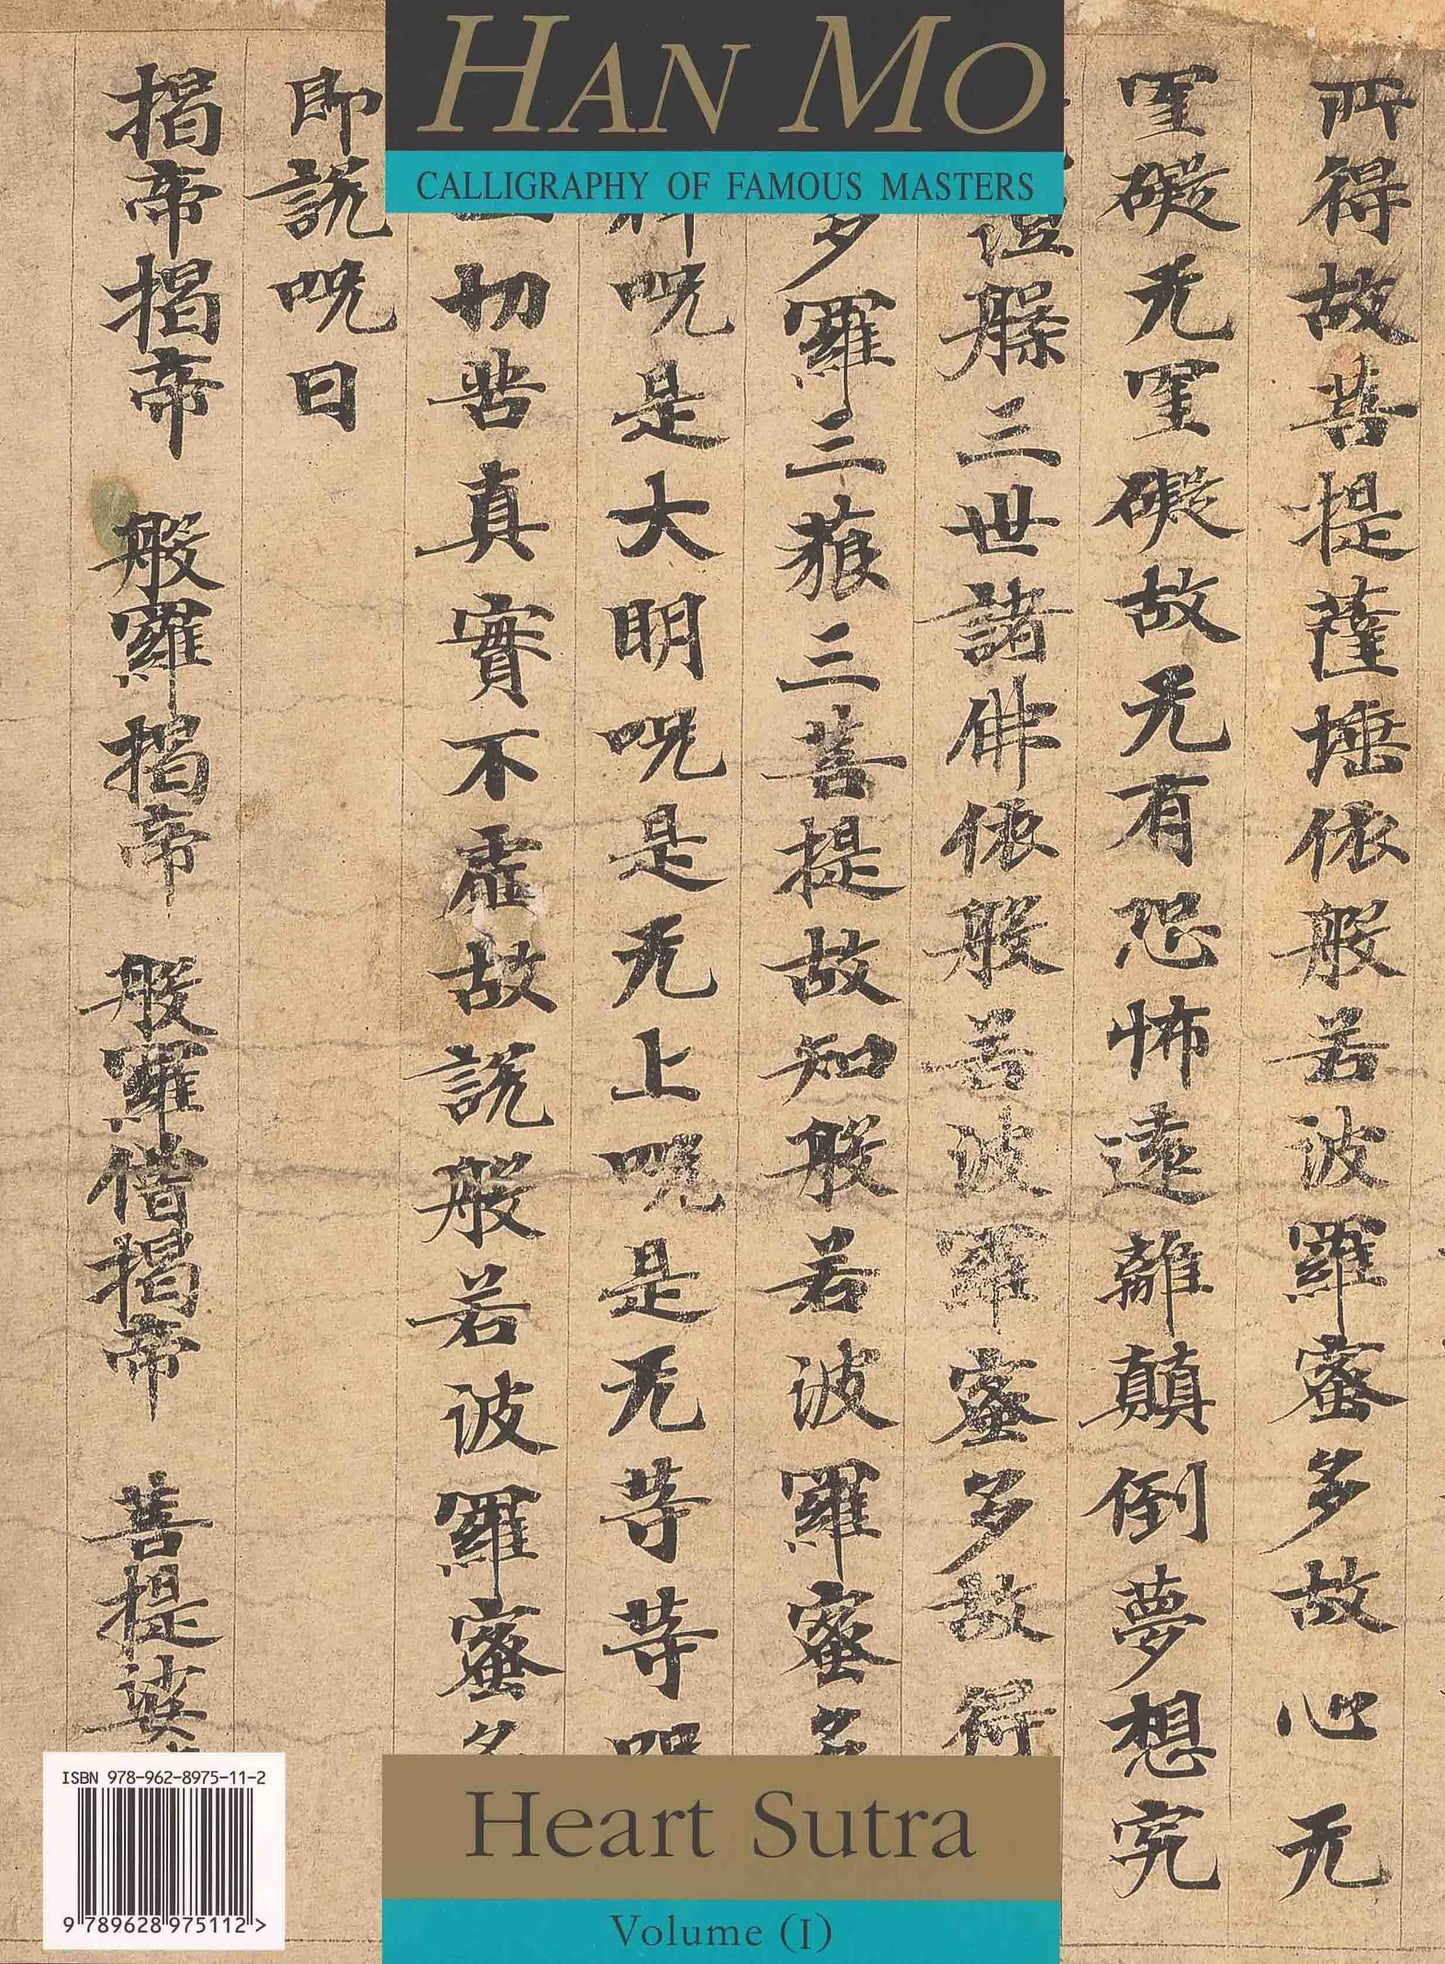 HAN MO
CALLIGRAPHY OF FAMOUS MASTERS
所得故菩提薩埵依般若波羅蜜多故心无
罣礙无罣礙故无有恐怖遠離顛倒夢想究
槃三世諸佛依般若波羅蜜多故得
多羅三藐三菩提故知般若波羅蜜多
神呪是大明呪是无上呪是无等等呪
一切苦真實不虛故說般若波羅蜜多
即說呪曰
揭帝揭帝 般羅揭帝 般羅僧揭帝 菩提娑
ISBN 978-962-8975-11-2
9 789628 975112 >
Heart Sutra
Volume (I)